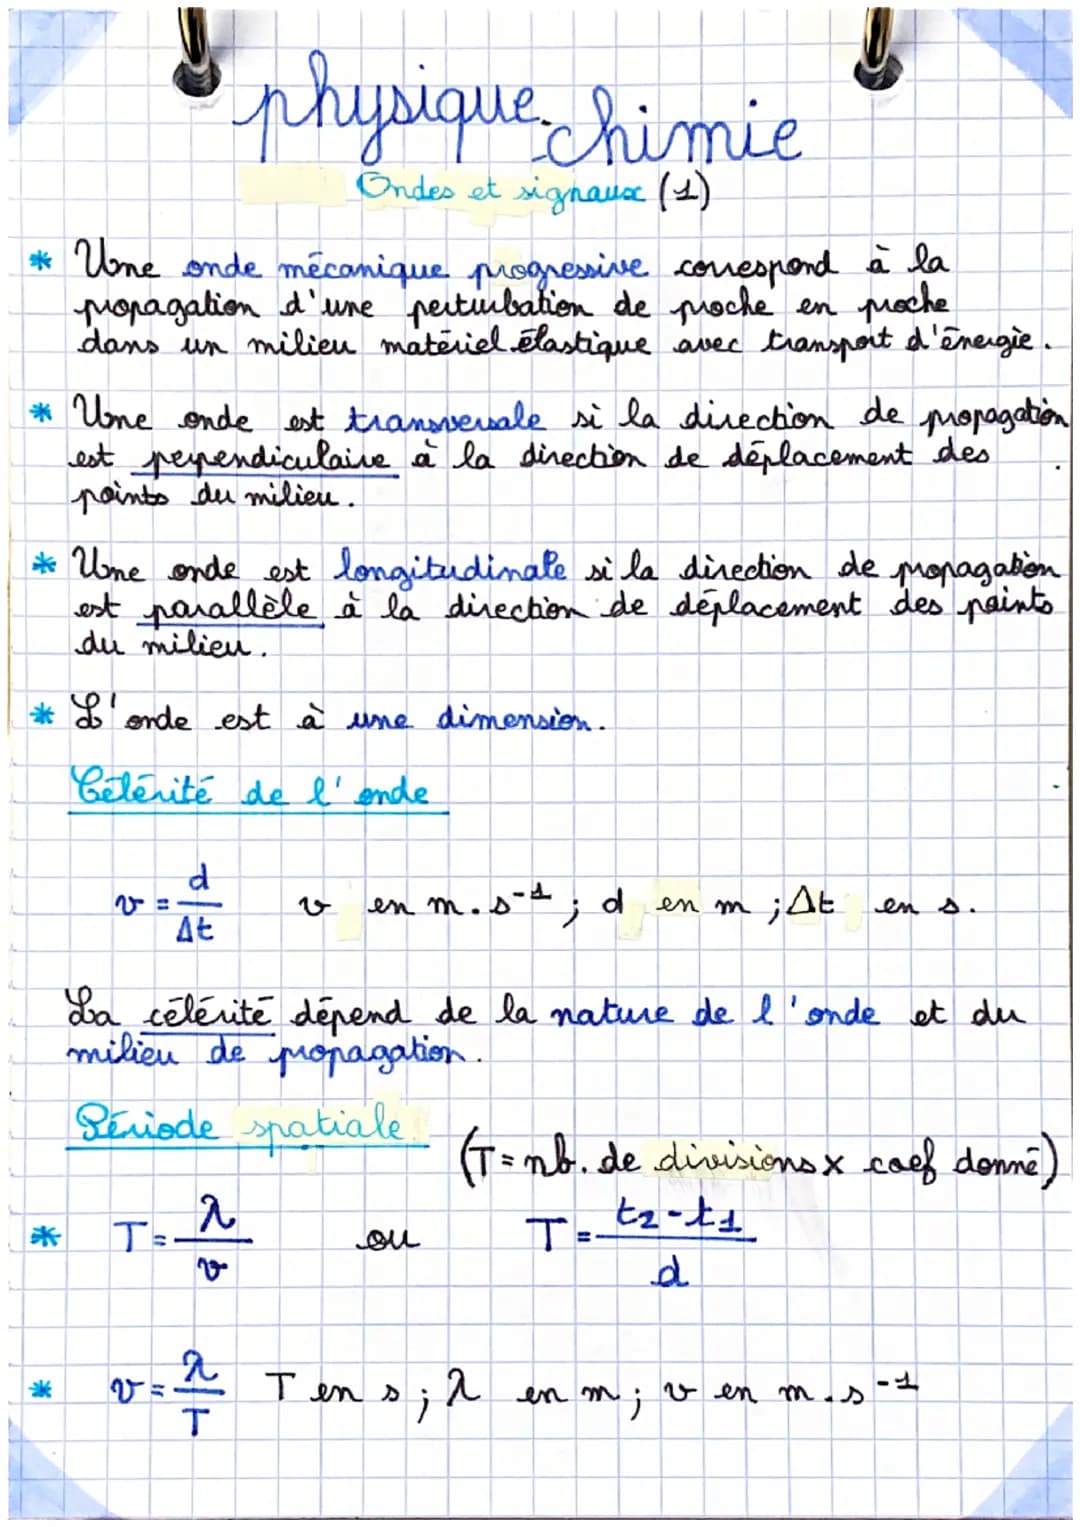 physique-chimie
Ondes et signaux (1)
* Une onde mécanique progressive correspond à la
propagation d'une perturbation de proche en proche
dans un milieu matériel élastique avec transport d'énergie.
* Une onde est transversale si la direction de propagation
est perpendiculaire à la direction de déplacement des
points du milieu.
* Une onde est longitudinale si la direction de propagation
est parallèle à la direction de déplacement des points
du milieu.
* L'onde est à une dimension.
Célérité de l'onde
v = d/Δt v en m.s⁻¹ ; d en m ; Δt en s.
La célérité dépend de la nature de l'onde et du
milieu de propagation.
Période spatiale
(T = nb. de divisions x coef donné)
* T = λ/v ou T = t2-t1/d
* v = λ/T T en s ; λ en m ; v en m.s⁻¹